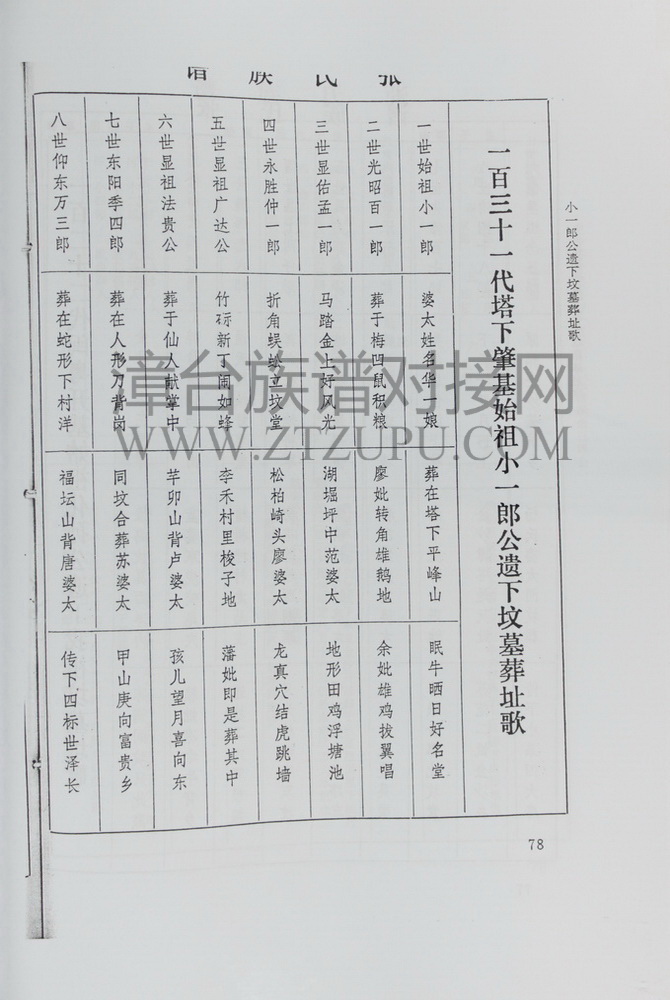 张氏族谱
小一郎公遗下坟墓葬址歌
一百三十一代塔下肇基始祖小一郎公遗下坟墓葬址歌
一世始祖小一郎
婆太姓名华一娘
葬在塔下平峰山
眠牛晒日好名堂
二世光昭百一郎
葬于梅凹鼠积粮
廖妣转角雄鹅地
余妣雄鸡拔翼唱
三世显佑孟一郎
马踏金上好风光
湖堀坪中范婆太
地形田鸡浮塘池
四世永胜仲一郎
折角蜈蚣立坟堂
松柏崎头廖婆太
龙真穴结虎跳墙
五世显祖广达公
竹标新丁闹如蜂
李禾村里梭子地
藩妣即是葬其中
六世显祖法贵公
葬于仙人献掌中
芋卯山背卢婆太
孩儿望月喜向东
七世东阳季四郎
葬在人形刀背岗
同坟合葬苏婆太
甲山庚向富贵乡
八世仰东万三郎
葬在蛇形下村洋
福坛山背唐婆太
传下四标世泽长
78
章台族谱对接网
WWW.ZTZUPU.COM